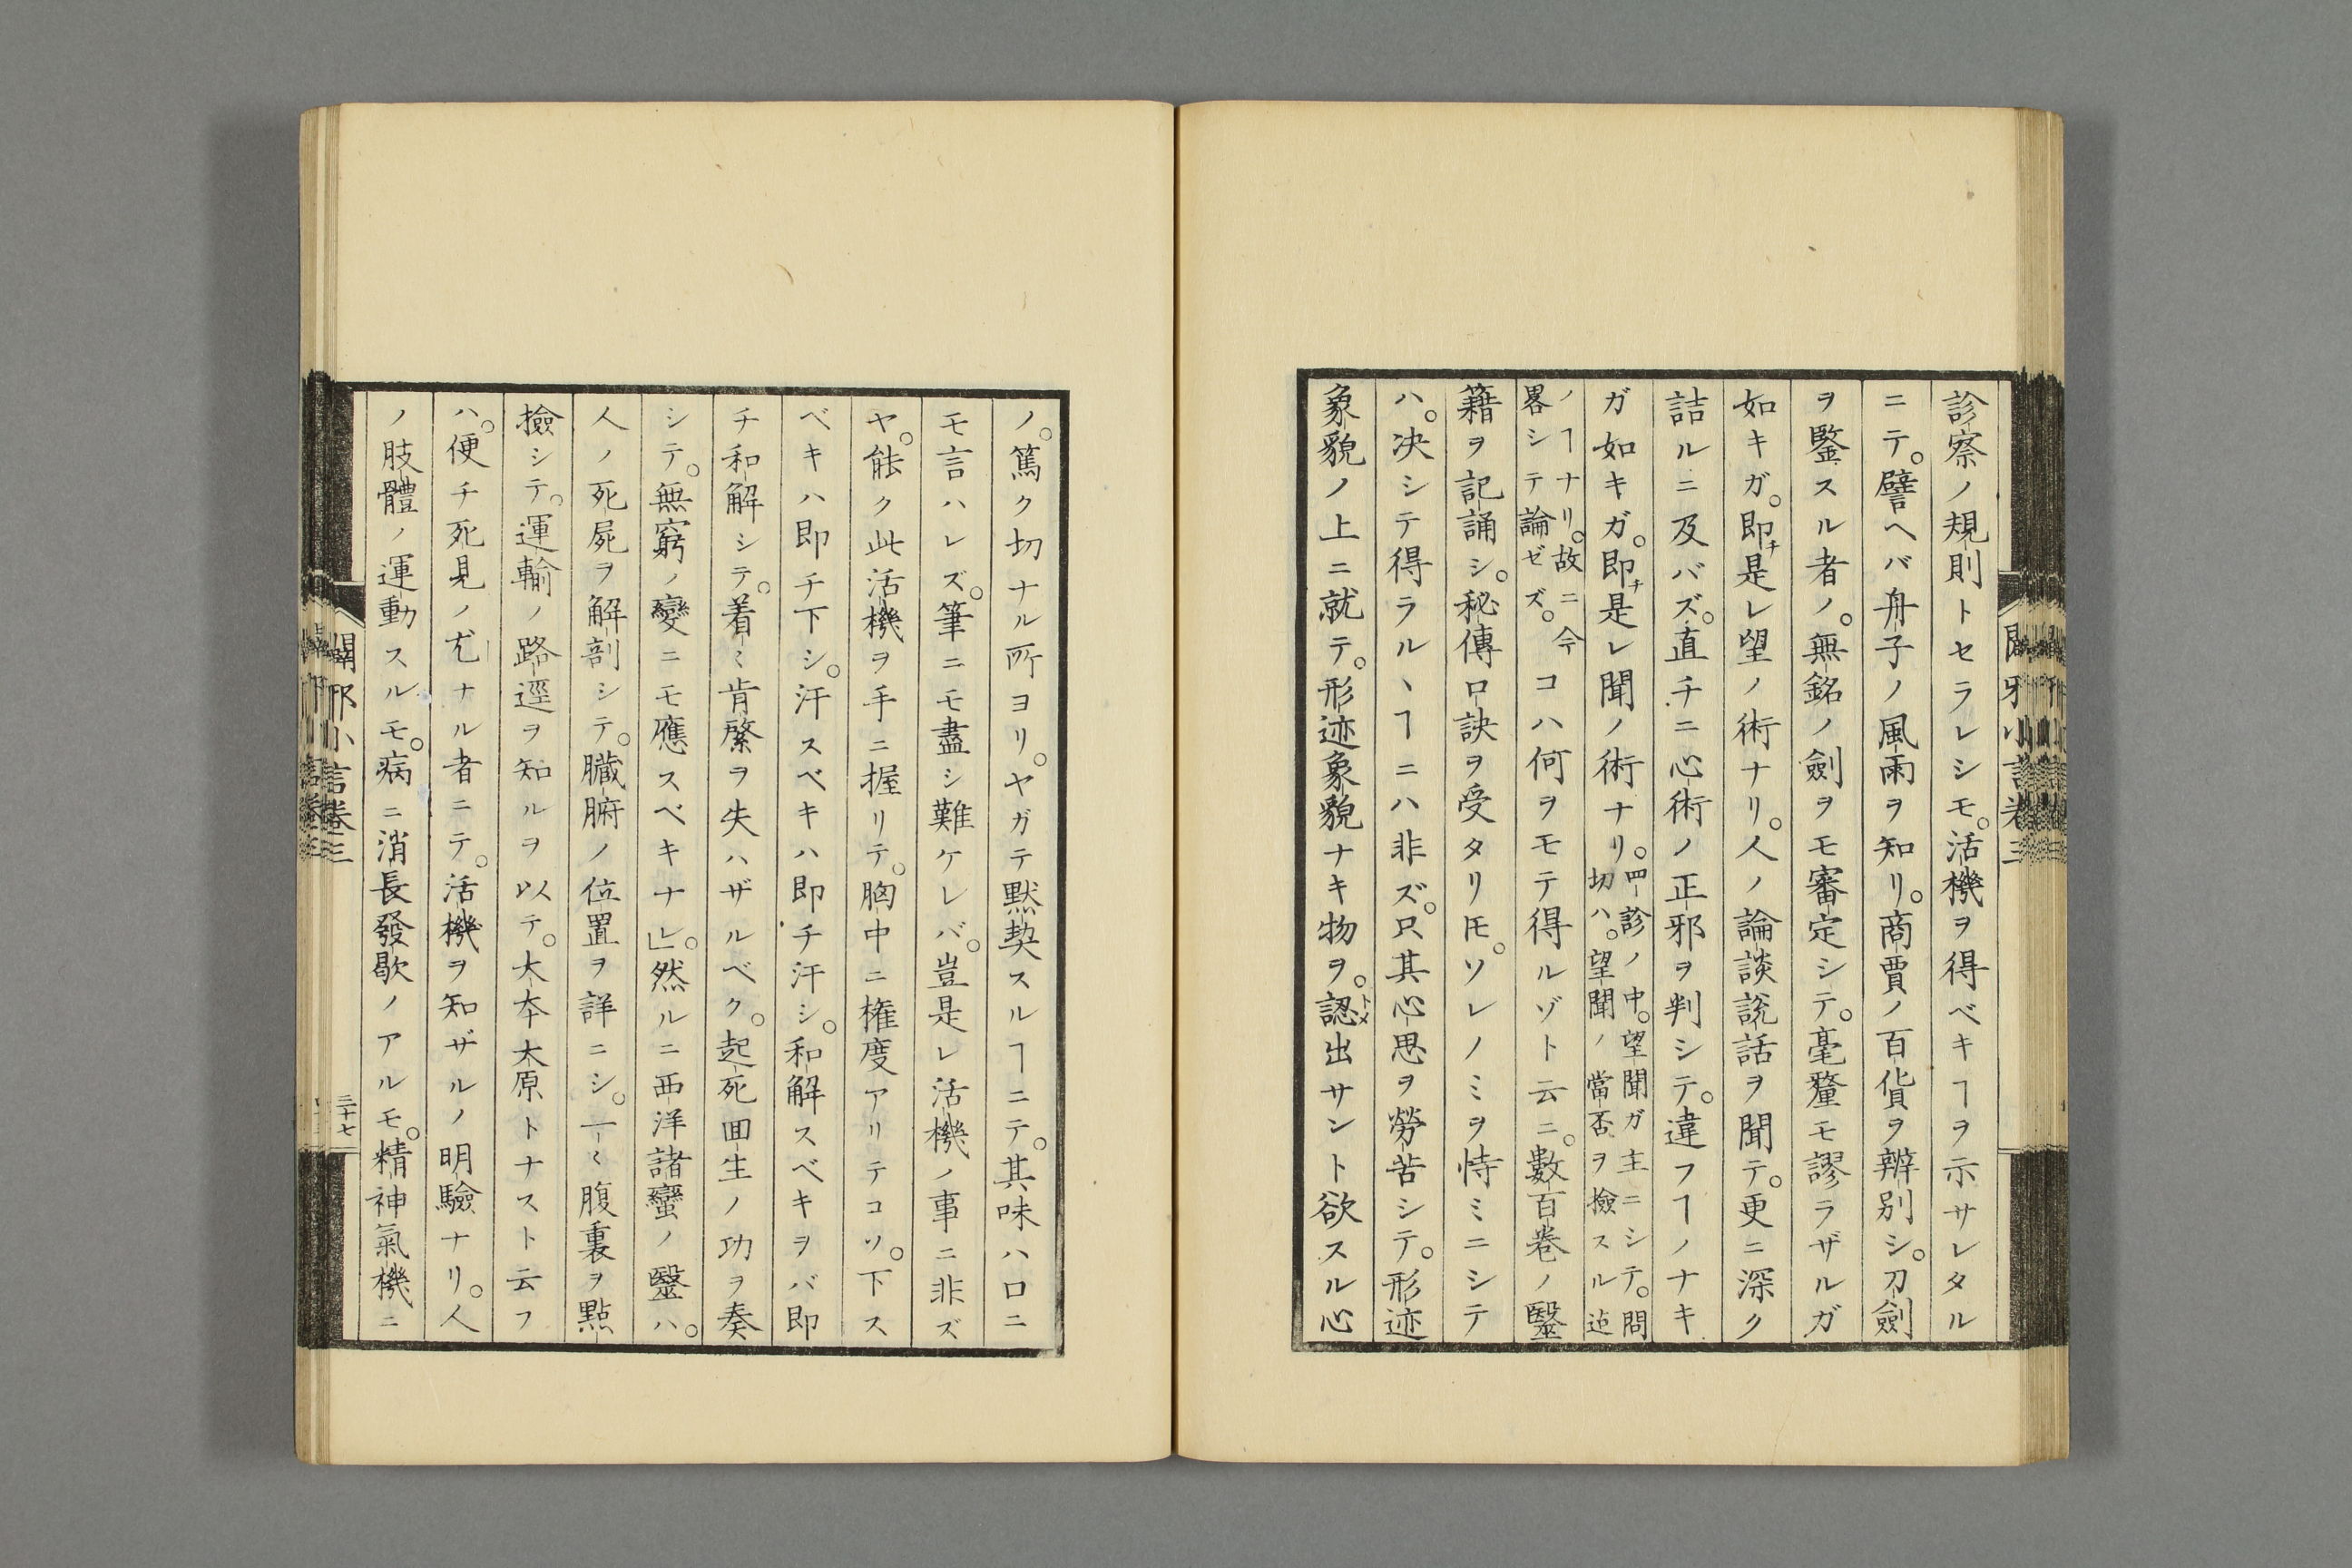 診察ノ規則トセラレシモ。活機ヲ得ベキヿヲ示サレタル
ニテ。譬ヘバ舟子ノ風雨ヲ知リ。商賈ノ百貨ヲ辨別シ。刀劍
ヲ鑒スル者ノ。無銘ノ劍ヲモ審定シテ。毫釐モ謬ラザルガ
如キガ。即チ是レ望ノ術ナリ。人ノ論談説話ヲ聞テ。更ニ深ク
詰ルニ及バズ。直チニ心術ノ正邪ヲ判シテ。違フヿノナキ
ガ如キガ。即チ是レ聞ノ術ナリ。四診ノ中。望聞ガ主ニシテ。問
切ハ。望聞ノ當否ヲ撿スル迠
ノヿナリ。故ニ今
畧シテ論ゼズ。コハ何ヲモテ得ルゾト云ニ。數百卷ノ醫
籍ヲ記誦シ。秘傳口訣ヲ受タリ𪜈。ソレノミヲ恃ミニシテ
ハ。决シテ得ラルヽヿニハ非ズ。只其心思ヲ勞苦シテ。形迹
象貌ノ上ニ就テ。形迹象貌ナキ物ヲ。認トメ出サント欲スル心
闢邪小言卷三
ノ。篤ク切ナル所ヨリ。ヤガテ黙契スルヿニテ。其味ハ口ニ
モ言ハレズ。筆ニモ盡シ難ケレバ。豈是レ活機ノ事ニ非ズ
ヤ。能ク此活機ヲ手ニ握リテ。胸中ニ権度アリテコソ。下ス
ベキハ即チ下シ。汗スベキハ即チ汗シ。和解スベキヲバ即
チ和解シテ。着〻肯綮ヲ失ハザルベク。起死囬生ノ功ヲ奏
シテ。無窮ノ變ニモ應スベキナレ」。然ルニ西洋諸蠻ノ醫ハ。
人ノ死屍ヲ解剖シテ。臓腑ノ位置ヲ詳ニシ。一〻腹裏ヲ點
撿シテ。運輸ノ路逕ヲ知ルヲ以テ。大本大原トナスト云フ
ハ。便チ死見ノ尤ナル者ニテ。活機ヲ知ザルノ明驗ナリ。人
ノ肢體ノ運動スルモ。病ニ消長發歇ノアルモ。精神氣機ニ
闢邪小言卷三
三十七